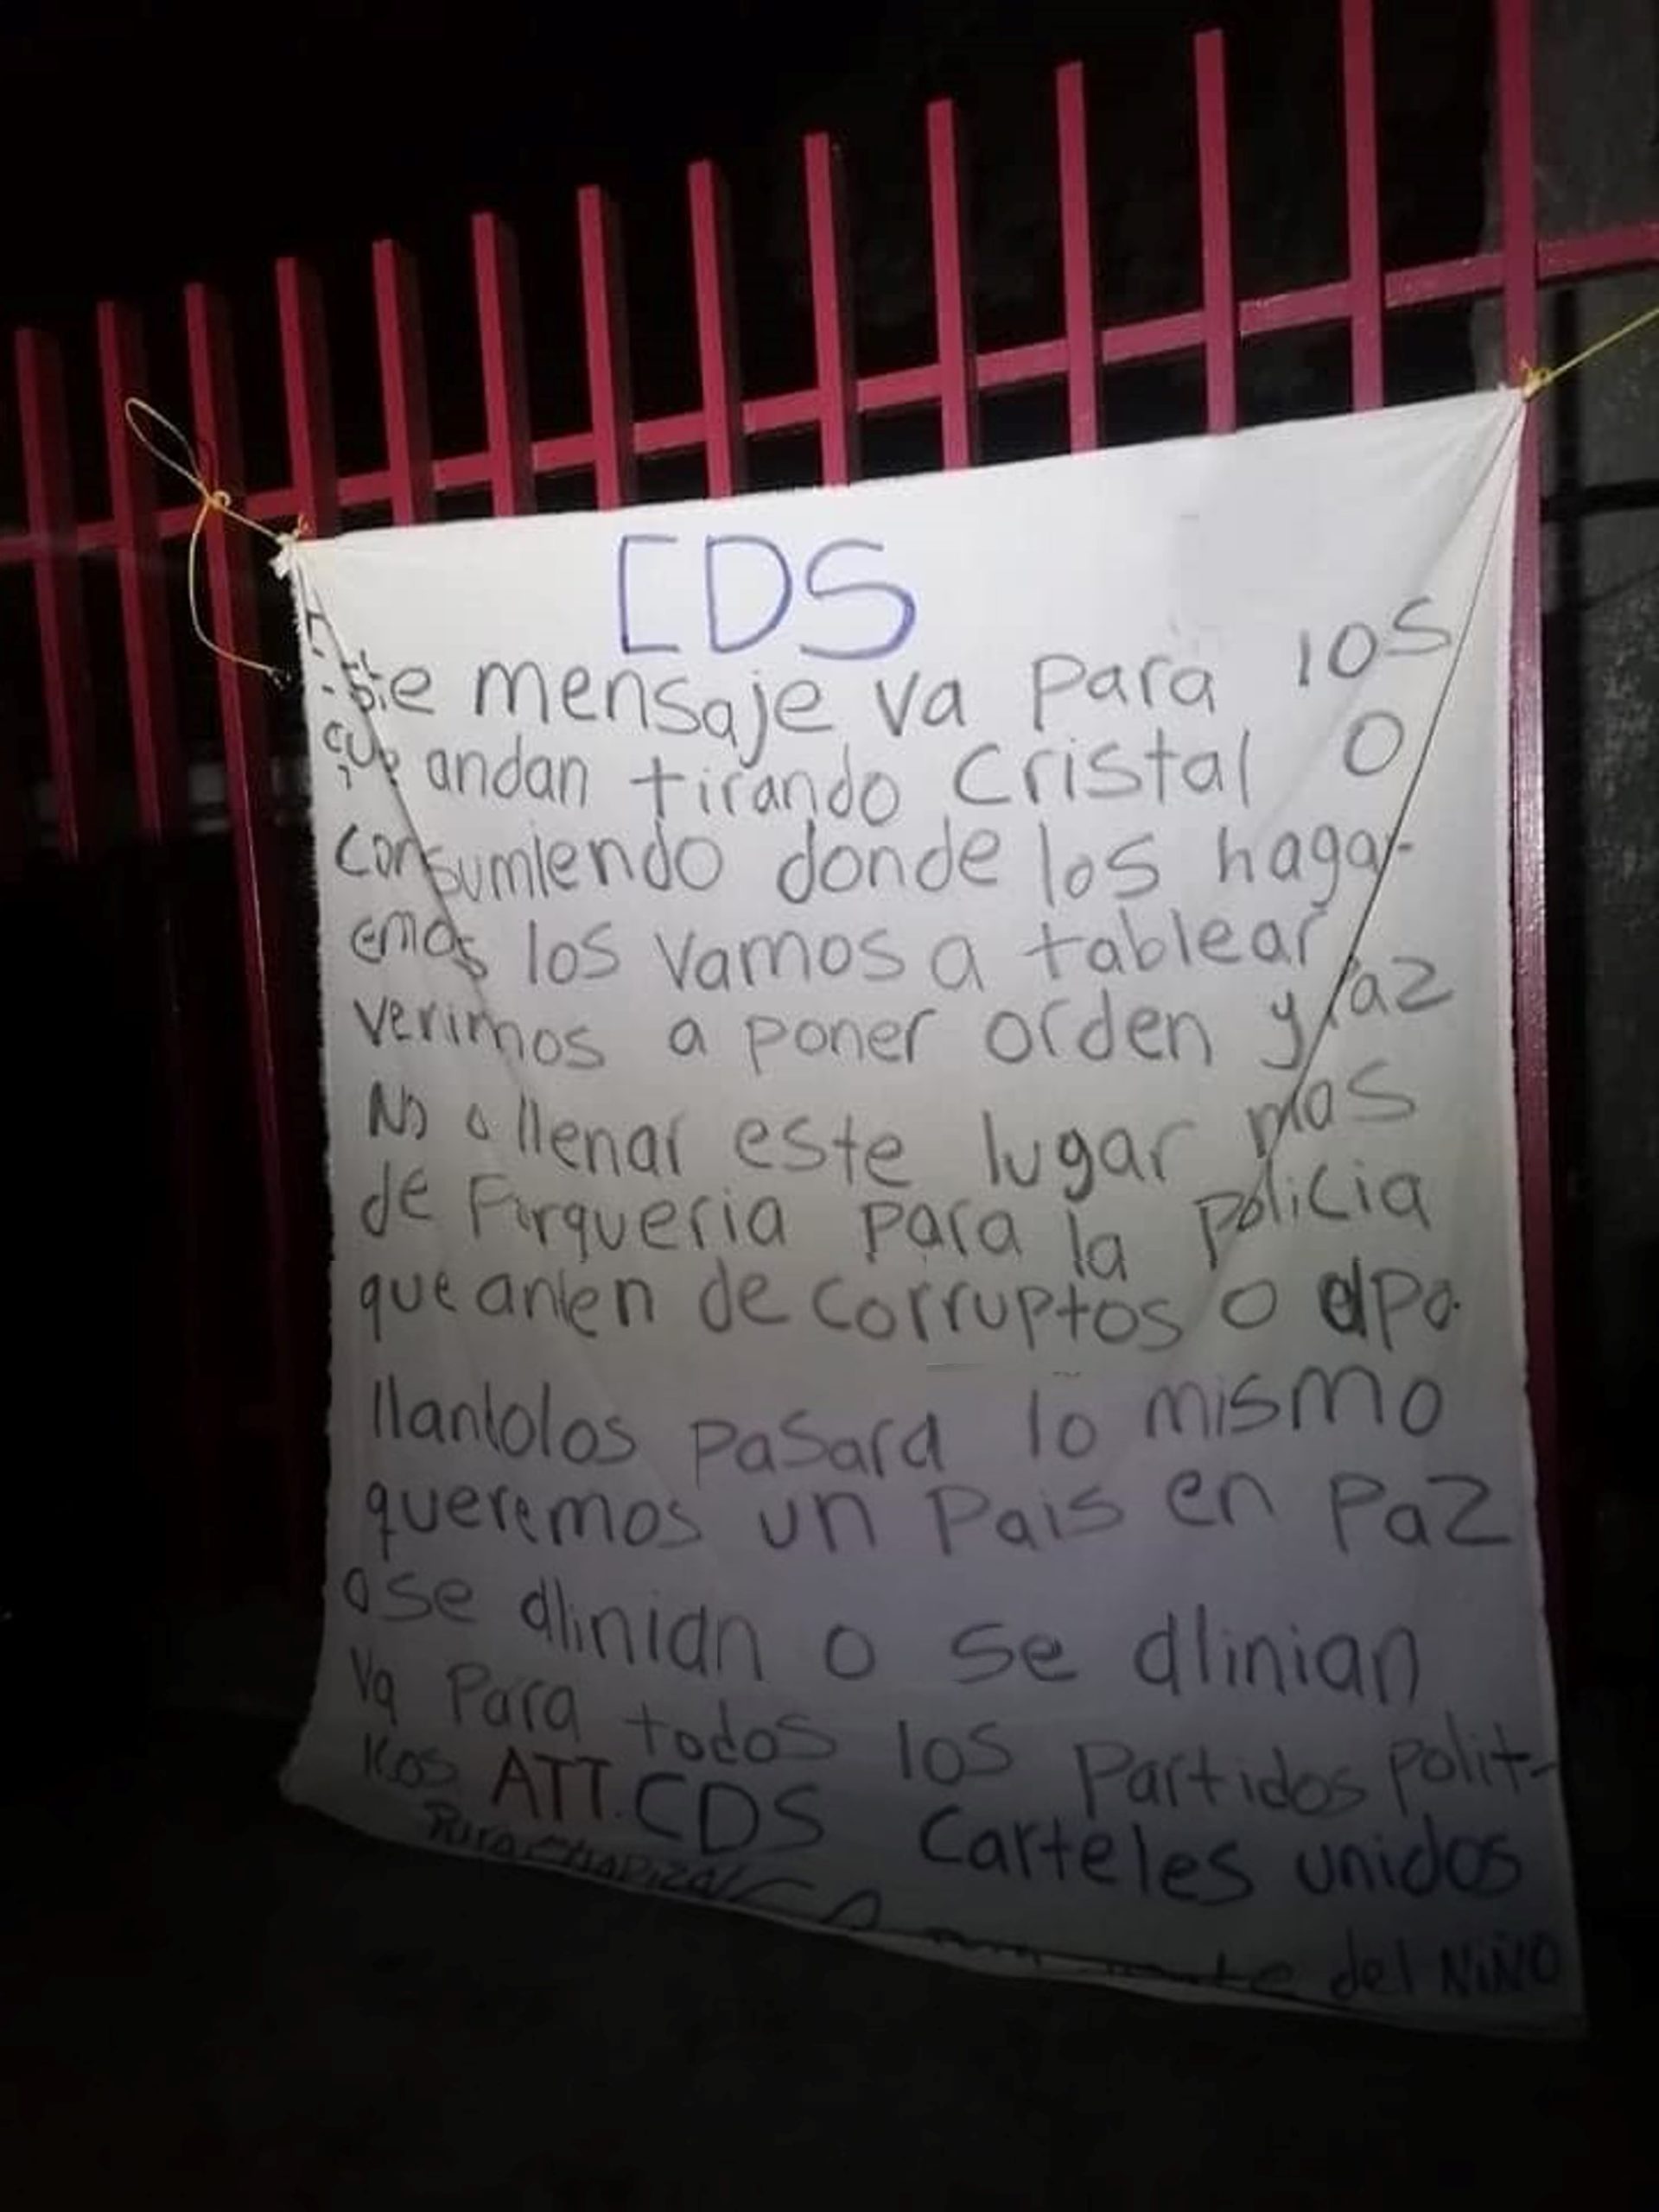 CDS
Este mensaje va para los
que andan tirando Cristal O
consumiendo donde los hagar-
emos los vamos a tablear
venimos a poner orden y Paz
No a llenar este lugar mas
de Porqueria para la policia
que anden de corruptos o apo-
llandolos pasara lo mismo
queremos un Pais en Paz
o se alinian o se alinian
Va Para todos los Partidos polit-
icos ATT. CDS Carteles unidos
Pura chapiza
del NiÑO